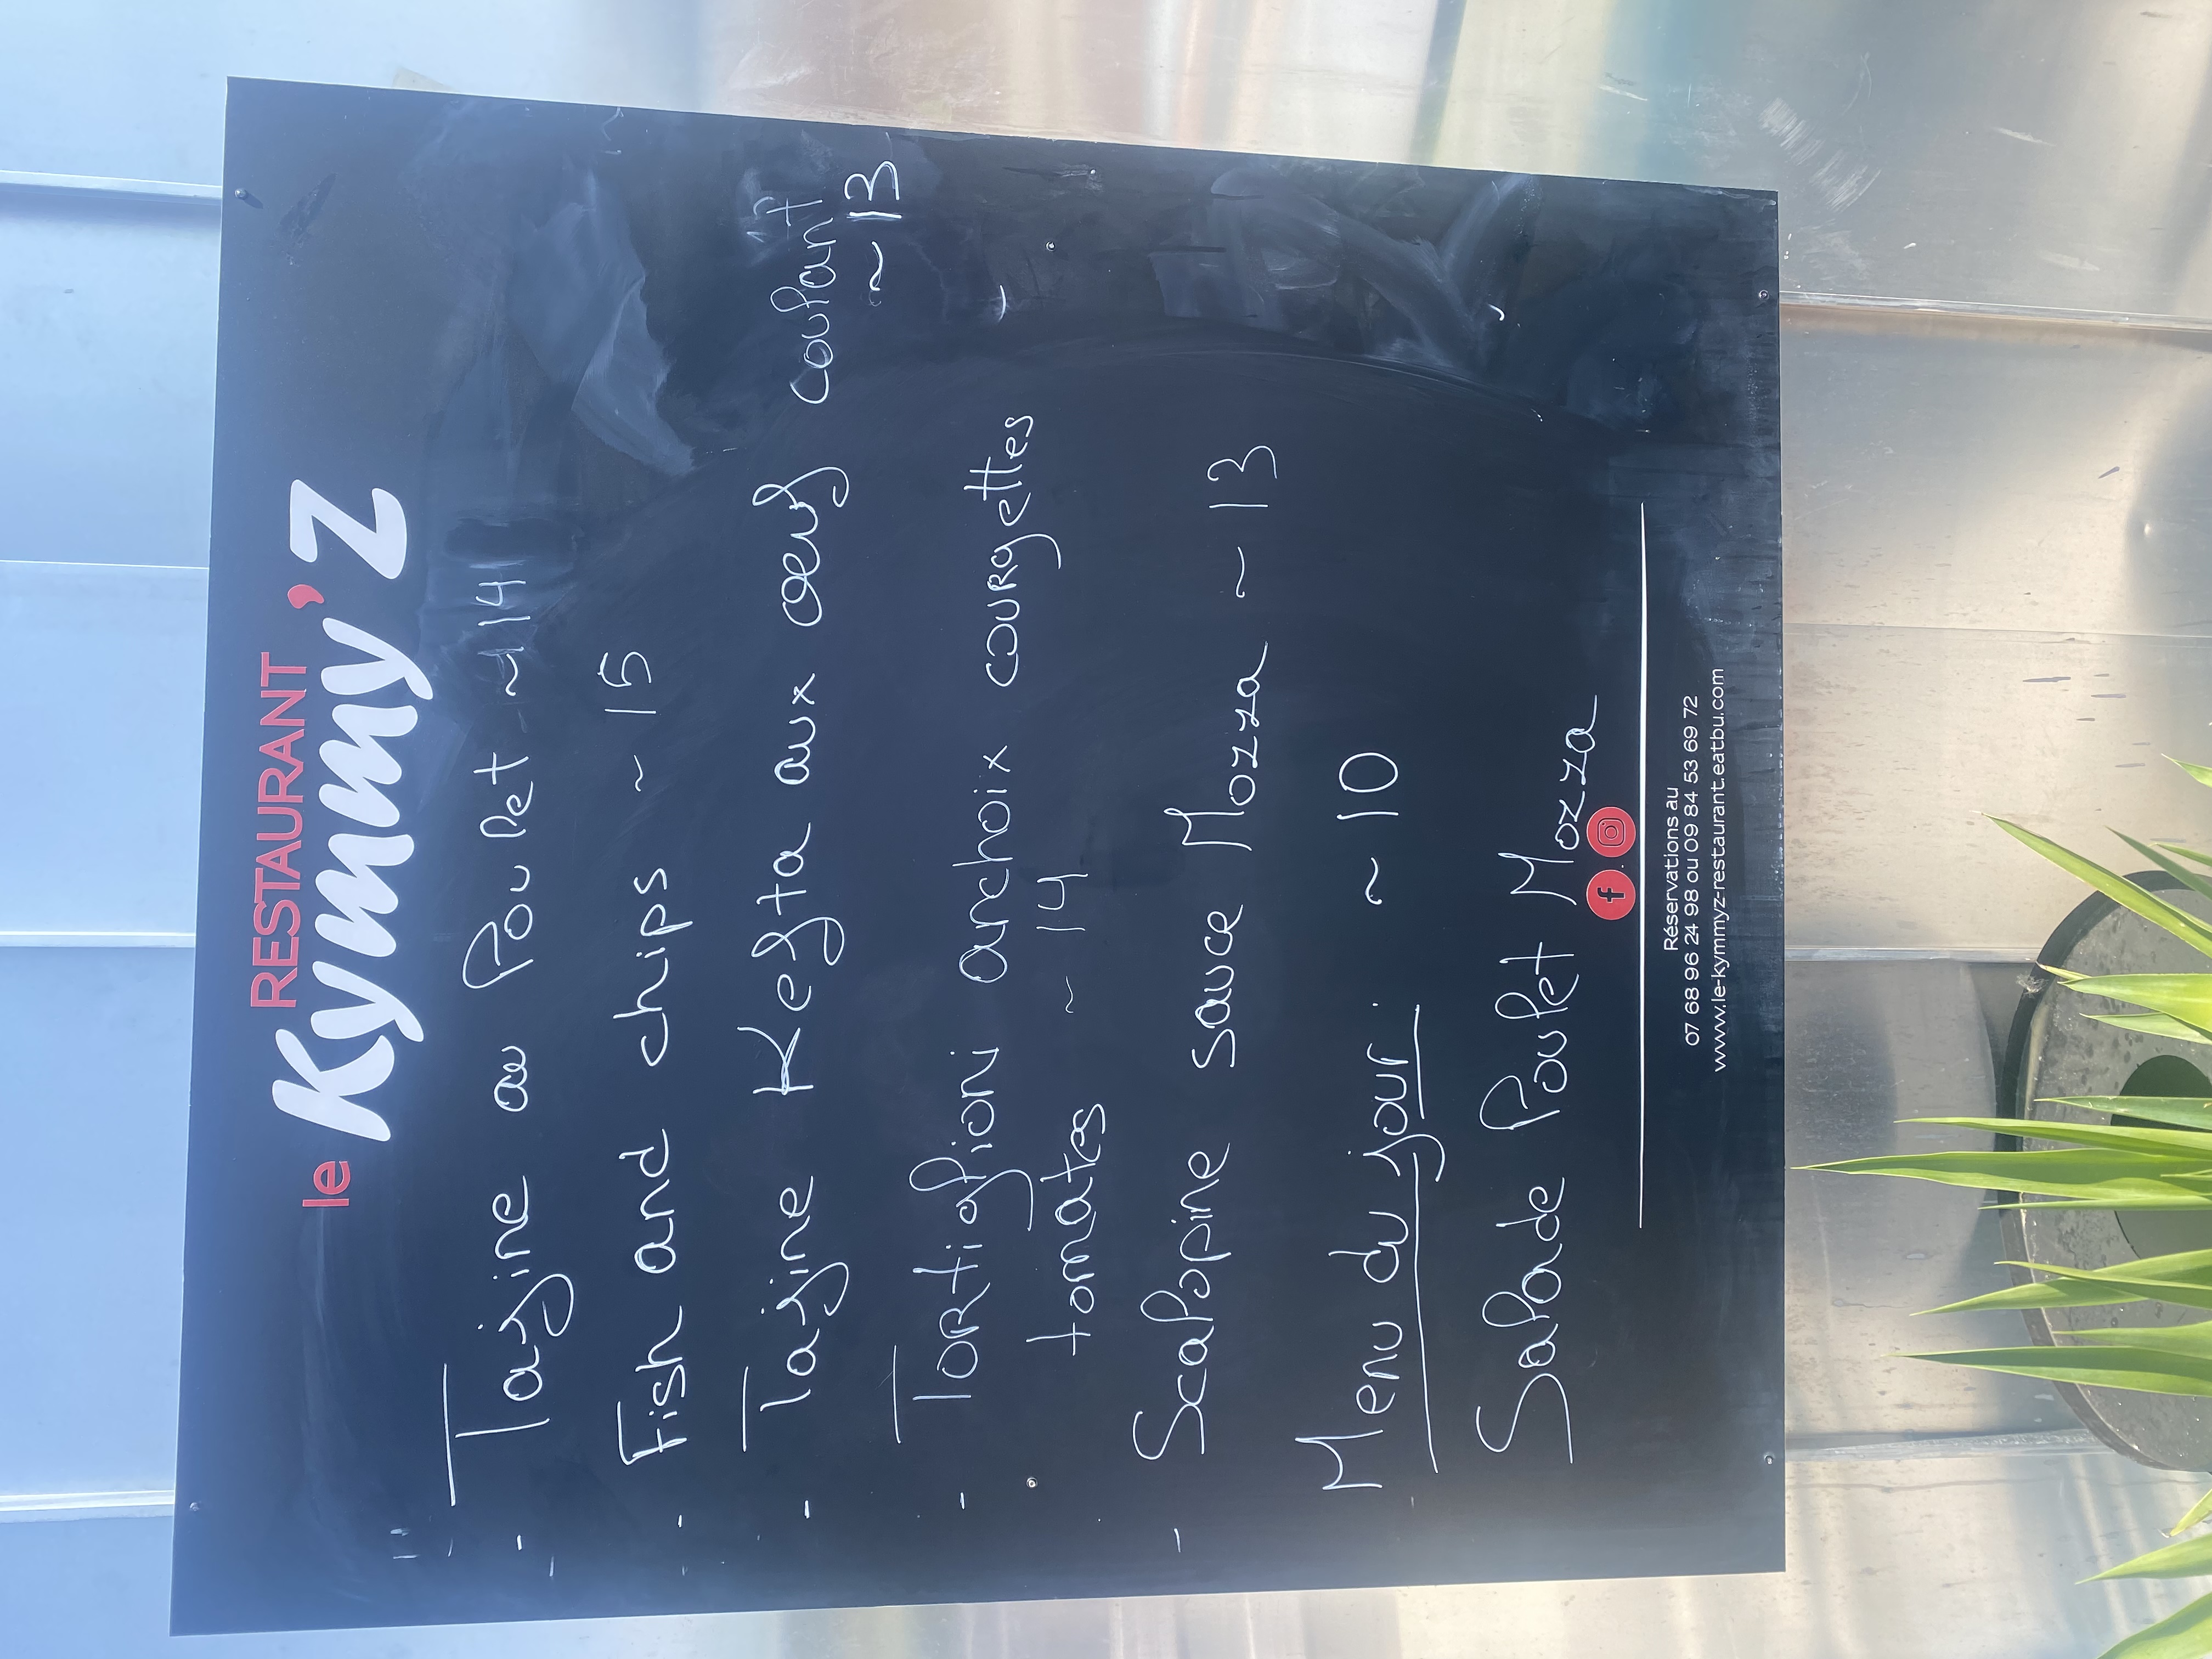 RESTAURANT
le Kymmy'Z
- Tajine au Poulet ~ 14
- Fish and chips ~ 15
- Tajine Kefta aux oeuf coulant
~ 13
- Tortiglioni anchoix courgettes
tomates ~ 14
- Scalopine sauce Mozza ~ 13
Menu du jour : ~ 10
Salade Poulet Mozza
Réservations au
07 68 96 24 98 ou 09 84 53 69 72
www.le-kymmyz-restaurant.eatbu.com